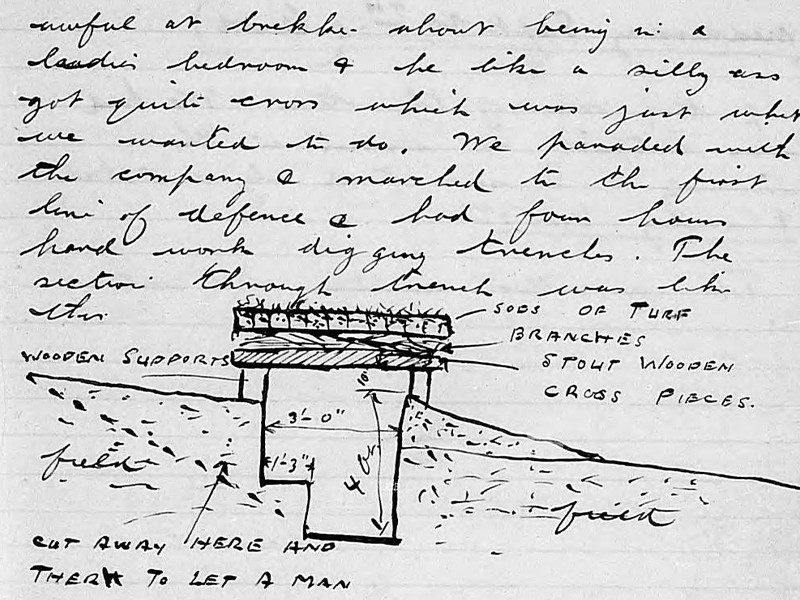 awful at brekker about being in a
ladies bedroom & he like a silly ass
got quite cross which was just what
we wanted to do. We paraded with
the company & marched to the first
line of defence & had four hours
hard work digging trenches. The
section through trench was like
this
SODS OF TURF
BRANCHES
STOUT WOODEN
CROSS PIECES.
WOODEN SUPPORTS
10"
3'-0"
1'-3"
field
field
CUT AWAY HERE AND
THERE TO LET A MAN